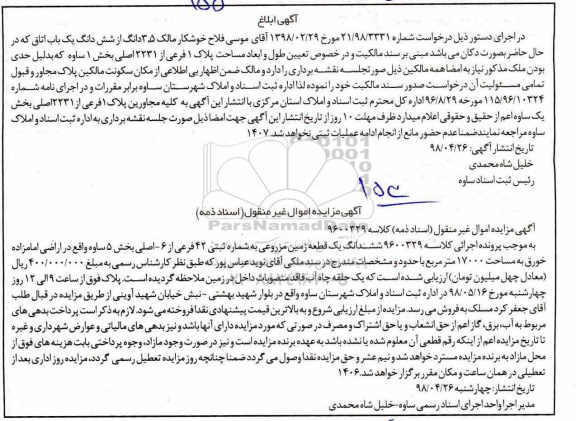 آگهی ابلاغ
در اجرای دستور ذیل درخواست شماره ۲۱/۹۸/۳۳۳۱ مورخ ۱۳۹۸/۰۲/۲۹ آقای موسی فلاح خوشکار مالک ۳٫۵دانگ از شش دانگ یک باب اتاق که در
حال حاضر بصورت دکان می باشد مبنی بر سند مالکیت و در خصوص تعیین طول و ابعاد مساحت پلاک ۱ فرعی از ۲۲۳۱اصلی بخش ۱ ساوه که بدلیل حدی
بودن ملک مذکور نیاز به امضا همه مالکین ذیل صورتجلسه نقشه برداری را دارد و مالک ضمن اظهار بی اطلاعی از مکان سکونت مالکین پلاک مجاور و قبول
تمامی مسئولیت آن درخواست صدور سند مالکیت خود را نموده لذا اداره ثبت اسناد و املاک شهرستان ساوه برابر مقررات و در اجرای نامه شماره
۱۱۵/۹۶/۱۰۳۲۴ مورخه ۹۶/۸/۲۹ اداره کل محترم ثبت اسناد و املاک استان مرکزی با انتشار این آگهی به کلیه مجاورین پلاک ۱ فرعی از ۲۲۳۱اصلی بخش
یک ساوه اعم از حقیق و حقوقی اعلام میدارد ظرف مهلت ۱۰ روز از تاریخ انتشار این آگهی جهت امضا ذیل صورت جلسه نقشه برداری به اداره ثبت اسناد و املاک
ساوه مراجعه نمایند ضمنا عدم حضور مانع از انجام ادامه عملیات ثبتی نخواهد شد. ۱۴۰۷
تاریخ انتشار آگهی: ۹۸/۰۴/۲۶
خلیل شاه محمدی
رئیس ثبت اسناد ساوه
آگهی مزایده اموال غیر منقول (اسناد ذمه)
آگهی مزایده اموال غیر منقول (اسناد ذمه) کلاسه ۹۶۰۰۳۲۹
به موجب پرونده اجرائی کلاسه ۹۶۰۰۳۲۹ ششدانگ یک قطعه زمین مزروعی به شماره ثبتی ۴۲ فرعی از ۶-اصلی بخش ۵ ساوه واقع در اراضی امامزاده
خورق به مساحت ۱۷۰۰۰ متر مربع با حدود و مشخصات مندرج در سند ملکی آقای نوید عباس پور که طبق نظر کارشناس رسمی به مبلغ ۴۰۰/۰۰۰/۰۰۰ ریال
(معادل چهل میلیون تومان) ارزیابی شده است که یک حلقه چاه آب فاقد منصوبات داخل در زمین ملاحظه گردیده است. پلاک فوق از ساعت ۹ الی ۱۲ روز
چهارشنبه مورخ ۹۸/۰۵/۱۶ در اداره ثبت اسناد و املاک شهرستان ساوه واقع در بلوار شهید بهشتی -نبش خیابان شهید آوینی از طریق مزایده در قبال طلب
آقای جعفر کرد مسلک به فروش می رسد. مزایده از مبلغ ارزیابی شروع و به بالاترین قیمت پیشنهادی نقدا فروخته می شود. لازم به ذکر است پرداخت بدهی های
مربوط به آب، برق، گاز اعم از حق انشعاب و یا حق اشتراک و مصرف در صورتی که مورد مزایده دارای آنها باشد و نیز بدهی های مالیاتی و عوارض شهرداری و غیره
تا تاریخ مزایده اعم از اینکه رقم قطعی آن معلوم شده یا نشده باشد به عهده برنده مزایده است و نیز در صورت وجود مازاد، وجوه پرداختی بابت هزینه های فوق از
محل مازاد به برنده مزایده مسترد خواهد شد و نیم عشر و حق مزایده نقدا وصول می گردد ضمنا چنانچه روز مزایده تعطیل رسمی گردد، مزایده روز اداری بعد از
تعطیلی در همان ساعت و مکان مقرر برگزار خواهد شد. ۱۴۰۶
تاریخ انتشار: چهارشنبه ۹۸/۰۴/۲۶
مدیر اجرا واحد اجرای اسناد رسمی ساوه-خلیل شاه محمدی